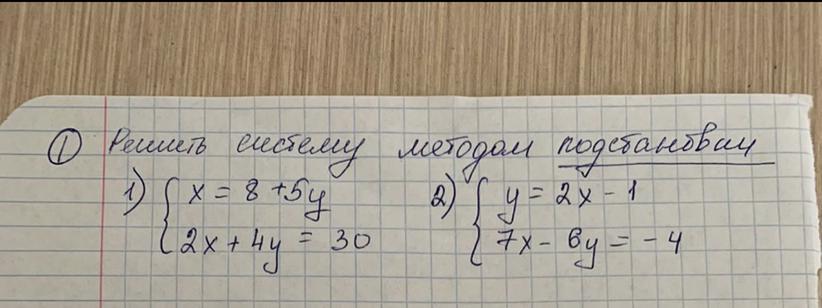 ① Решить систему методом подстановки
1) { x = 8 + 5y 2) { y = 2x - 1
2x + 4y = 30 7x - 6y = -4